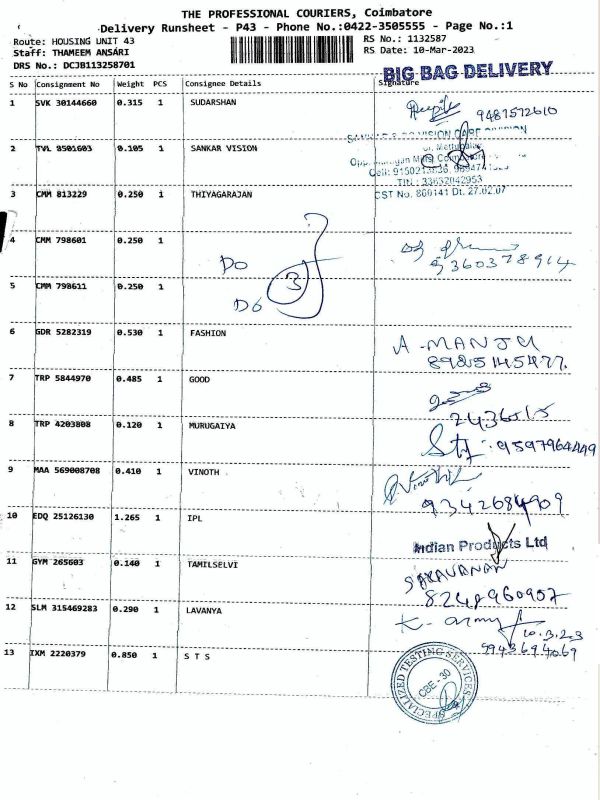 THE PROFESSIONAL COURIERS, Coimbatore
Delivery Runsheet - P43 - Phone No.:0422-3505555 - Page No.:1
Route: HOUSING UNIT 43 RS No.: 1132587
Staff: THAMEEM ANSARI RS Date: 10-Mar-2023
DRS No.: DCJB113258701
BIG BAG DELIVERY
S No Consignment No Weight PCS Consignee Details Signature
1 SVK 30144660 0.315 1 SUDARSHAN
9487572610
2 TVL 8501603 0.105 1 SANKAR VISION
TIN : 33632042953
CST No. 860141 Dt. 27.02.07
3 CMM 813229 0.250 1 THIYAGARAJAN
4 CMM 798601 0.250 1
9360378914
Do
3
5 CMM 798611 0.250 1
Do
6 GDR 5282319 0.530 1 FASHION
A. MANJU
8925145477.
7 TRP 5844970 0.485 1 GOOD
2436515
8 TRP 4203808 0.120 1 MURUGAIYA
9597964449
9 MAA 569008708 0.410 1 VINOTH
Vinoth
9342684909
10 EDQ 25126130 1.265 1 IPL
Indian Products Ltd
11 GYM 265603 0.140 1 TAMILSELVI
SARAVANAN
8248960957
12 SLM 315469283 0.290 1 LAVANYA
10.3.23
9943694069
13 IXM 2220379 0.850 1 S T S
SPECIALIZED TESTING SERVICES
CBE - 30